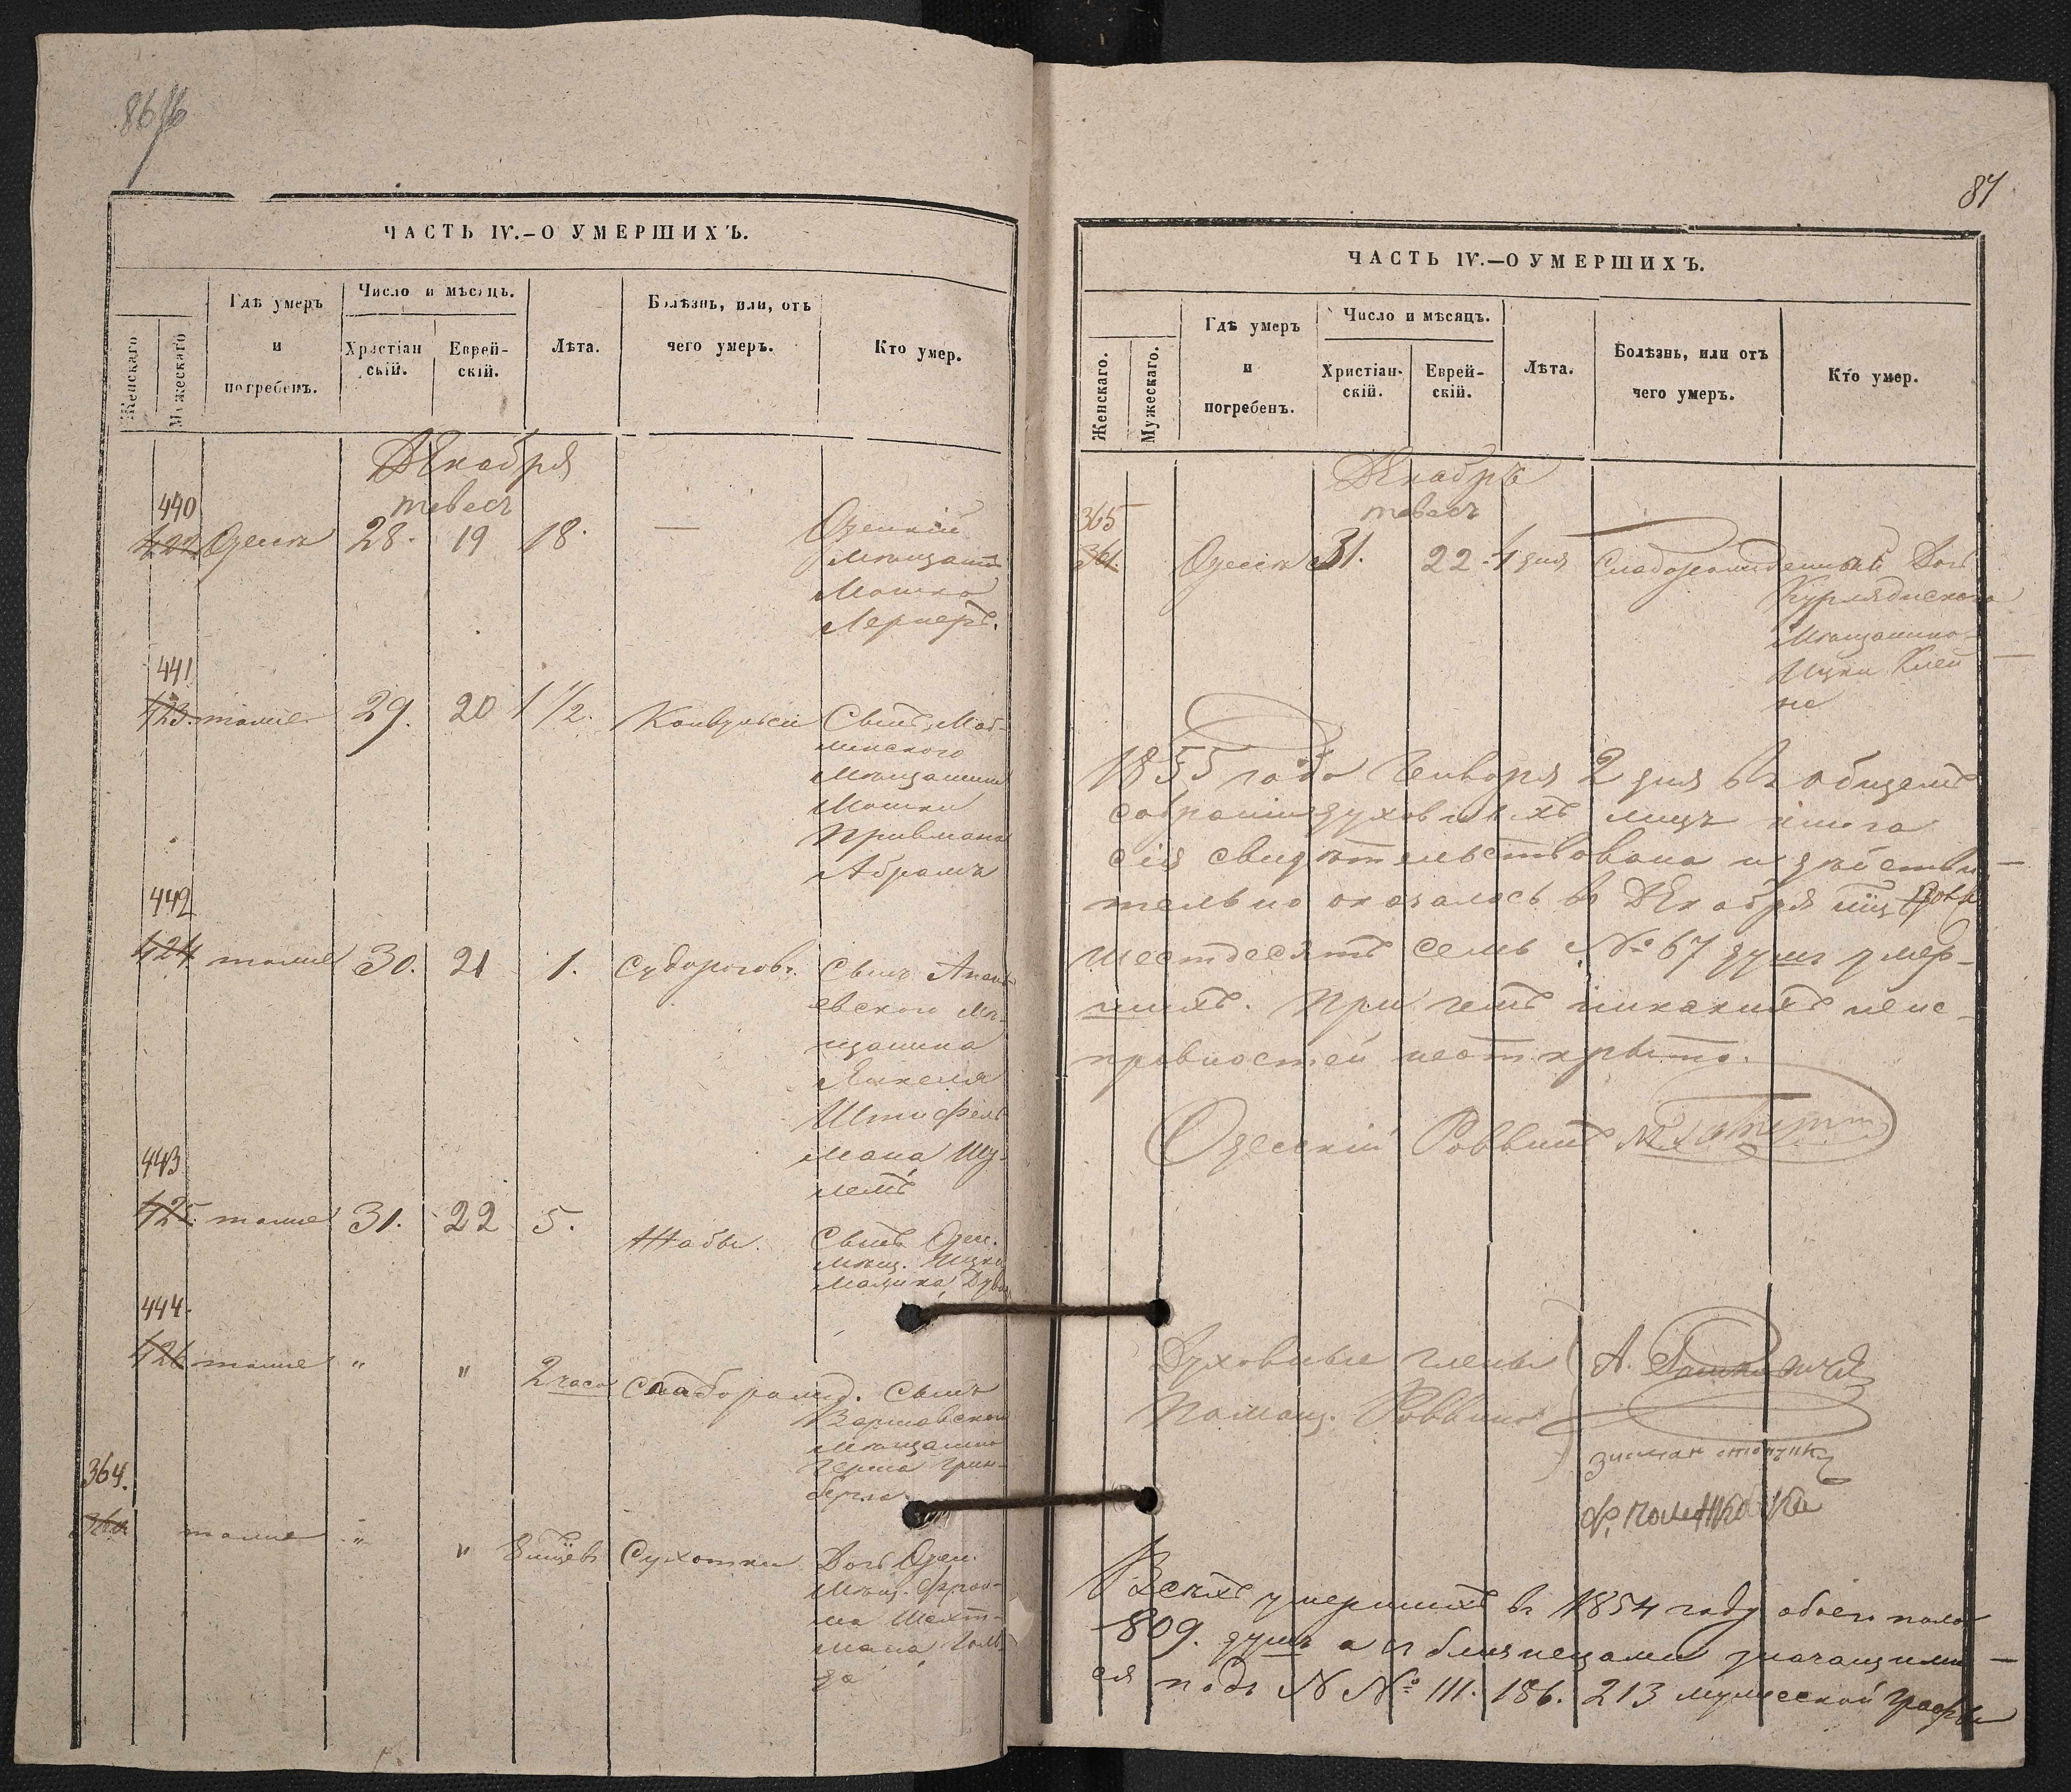 86
ЧАСТЬ IV.—О УМЕРШИХЪ.
Женскаго
Мужескаго
Гдѣ умеръ
и
погребенъ.
Число и мѣсяцъ.
Христіан
скій.
Еврей-
скій.
Лѣта.
Болѣзнь, или, отъ
чего умеръ.
Кто умер.
Декабря
тевесъ
440
422 Одесса 28. 19 18. — Одесскій
Мѣщанинъ
Мошко
Лернеръ.
441
423. тоже 29. 20 1 1/2. Конвульсіи Сынъ Мог-
линского
мѣщанина
Мошки
Привмана
Абрамъ
442
424 тоже 30. 21 1. Судороговъ. Сынъ Анань-
евского мѣ-
щанина
Янкеля
Штифель
мана Шу-
лемъ
443
425. тоже 31. 22 5. Жабы. Сынъ Одес.
мѣщ. Ицки
444.
426 тоже " " 2 часа Слаборожд. Сынъ
Варшавского
мѣщанина
Герша Грин-
берга
364.
360 тоже " " Сухотки Дочь Одес.
мѣщ. Фрои-
ма Шехт-
мана Голь
да
87
ЧАСТЬ IV.—О УМЕРШИХЪ.
Женскаго.
Мужескаго.
Гдѣ умеръ
и
погребенъ.
Число и мѣсяцъ.
Христіан-
скій.
Еврей-
скій.
Лѣта.
Болѣзнь, или отъ
чего умеръ.
Кто умер.
Декабрь
тевесъ
365
361. Одесса 31. 22. 1 дня Слаборожденный Дочь
Курляндского
Мѣщанина
Ицки Клей
не
1855 года Генваря 2 дня въ общемъ
собраніи духовныхъ лицъ книга
сія свидѣтельствована и дѣйстви
тельно оказалось въ Декабря мцѣ
шестдесятъ семь № 67 душъ умер-
шихъ. При чемъ никакихъ неис-
правностей неоткрыто.
Одесскій Раввинъ
Духовные члены
Помощ. Раввина
Всѣхъ умершихъ въ 1854 году обоего пола
809. душъ а съ близнецами значащими
ся подъ N№ 111. 186. 213 мужеской графы